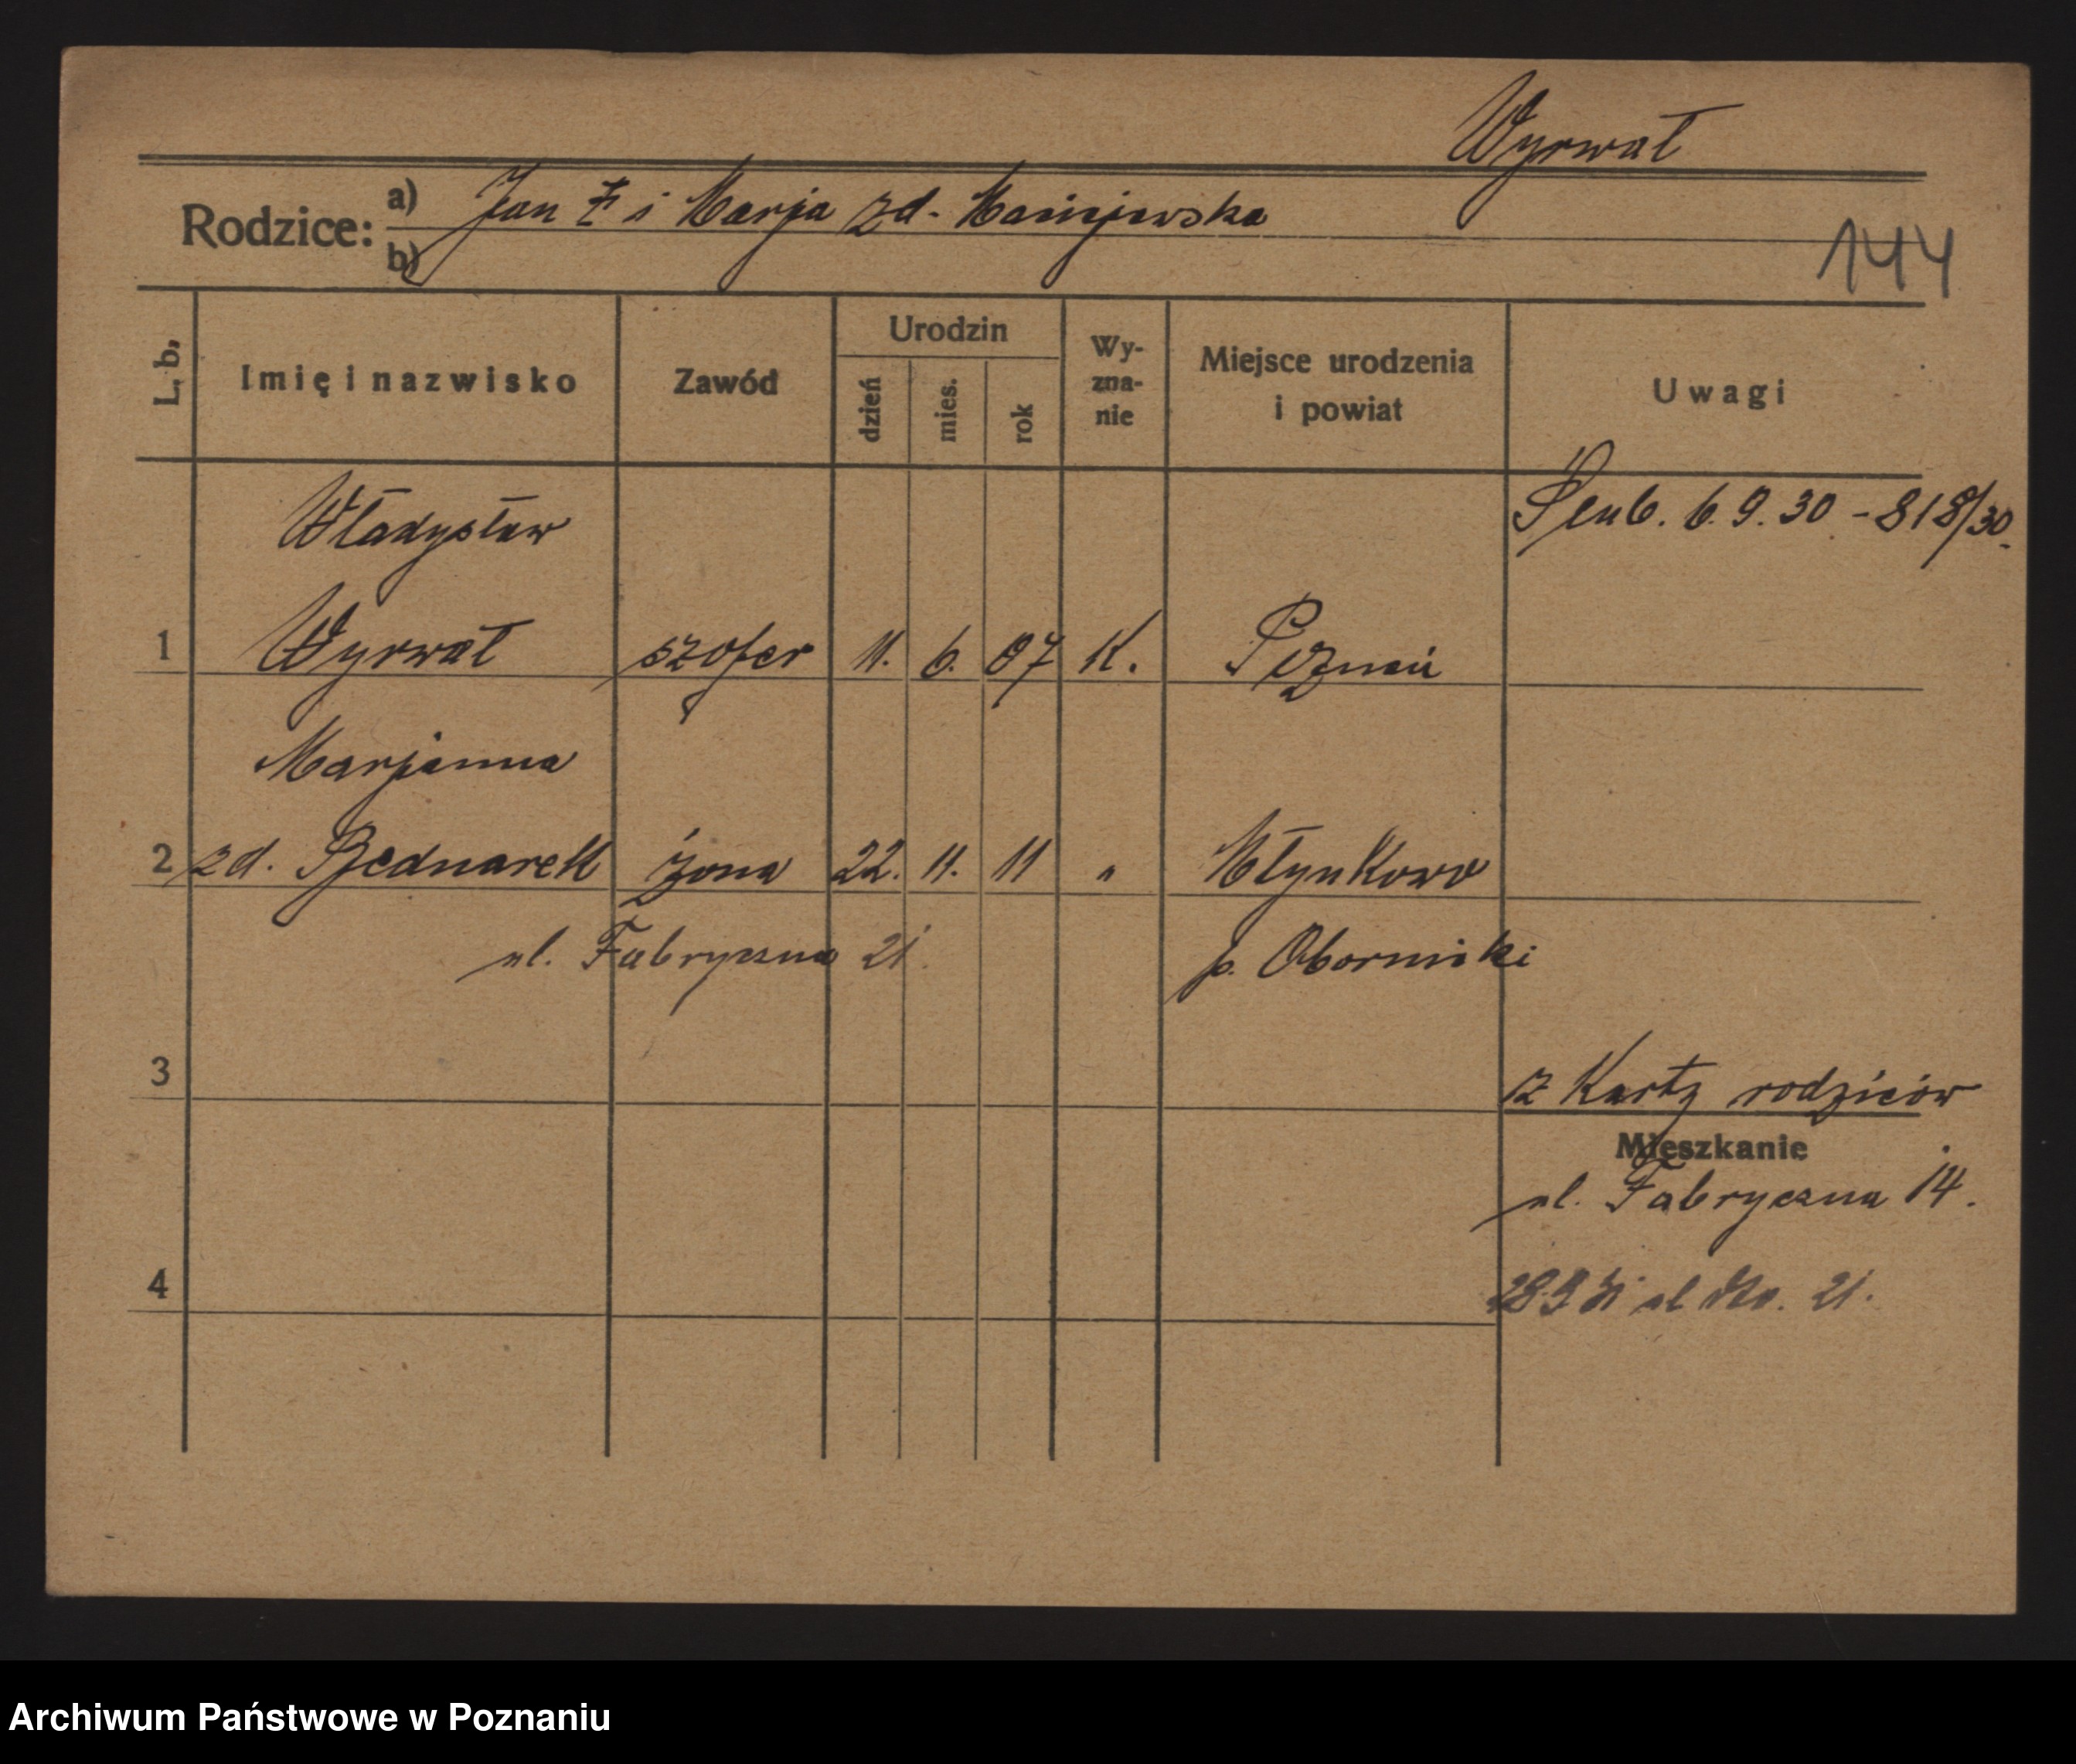 Wyrwał
Rodzice: a) Jan Ł i Marja zd. Maciejewska
b)
144
L. b. Imię i nazwisko Zawód Urodzin dzień mies. rok Wyznanie Miejsce urodzenia i powiat Uwagi
Władysław Ślub. 6. 9. 30 - 818/30.
1 Wyrwał szofer 11. 6. 07 K. Poznań
Marjanna
2 zd. Bednarek żona 22. 11. 11 " Młynkowo
ul. Fabryczna 21. p. Oborniki
3 z Karty rodziców
Mieszkanie
ul. Fabryczna 14.
4 28.9 31 ul dto. 21.
Archiwum Państwowe w Poznaniu